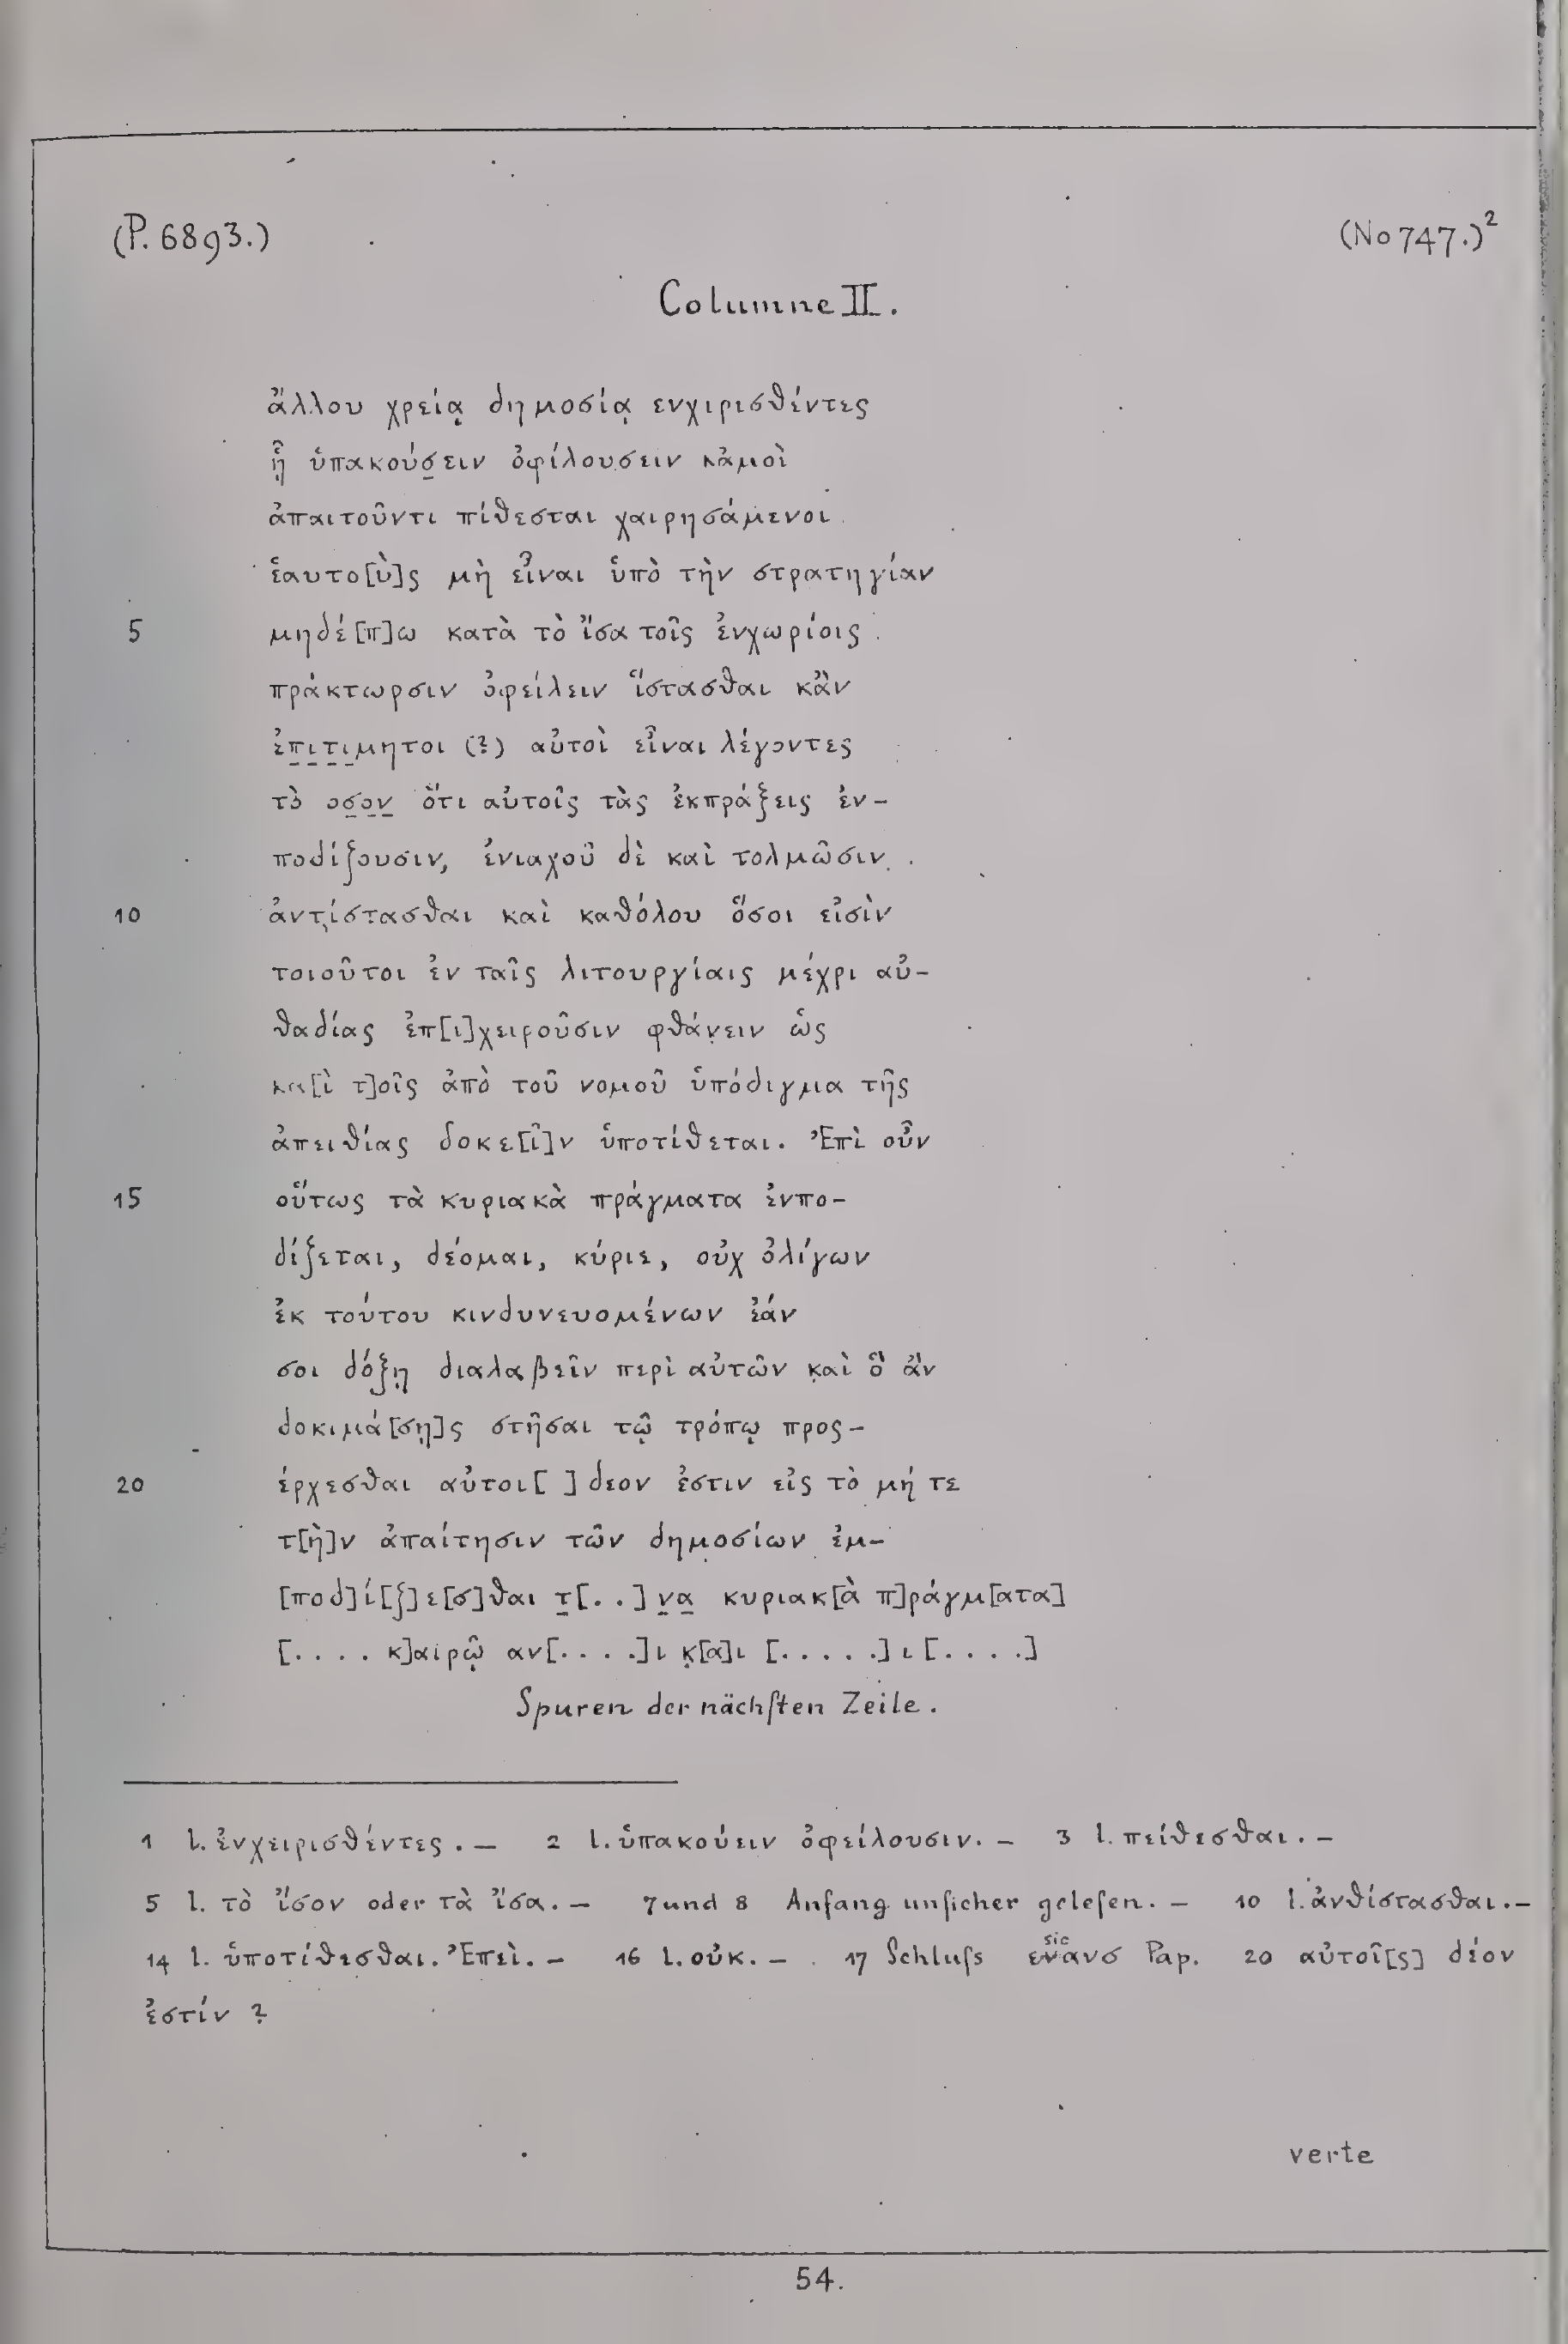 (P. 6893.) (No 747.)²
Columne II.
ἄλλου χρείᾳ δημοσίᾳ ενχιρισθέντες
ᾗ ὑπακούσ̲ειν ὀφίλουσειν κἀμοὶ
ἀπαιτοῦντι πίθεσται χαιρησάμενοι
ἑαυτο[ὺ]ς μὴ εἶναι ὑπὸ τὴν στρατηγίαν
5 μηδέ[π]ω κατὰ τὸ ἴσα τοῖς ἐνχωρίοις
πράκτωρσιν ὀφείλειν ἵστασθαι κἂν
ἐπ̲ι̲τ̲ι̲μητοι (?) αὐτοὶ εἶναι λέγοντες
τὸ οσ̲ο̲ν̲ ὅτι αὐτοῖς τὰς ἐκπράξεις ἐν-
ποδίζουσιν, ἐνιαχοῦ δὲ καὶ τολμῶσιν
10 ἀντίστασθαι καὶ καθόλου ὅσοι εἰσὶν
τοιοῦτοι ἐν ταῖς λιτουργίαις μέχρι αὐ-
θαδίας ἐπ[ι]χειροῦσιν φθάν̣ειν ὡς
κα[ὶ τ]οῖς ἀπὸ τοῦ νομοῦ ὑπόδιγμα τῆς
ἀπειθίας δοκε[ῖ]ν ὑποτίθεται. Ἐπὶ οὖν
15 οὕτως τὰ κυριακὰ πράγματα ἐνπο-
δίζεται, δέομαι, κύριε, οὐχ ὀλίγων
ἐκ τούτου κινδυνευομένων ἐάν
σοι δόξῃ διαλαβεῖν περὶ αὐτῶν κ̣αὶ ὃ ἂν
δοκιμά[σῃ]ς στῆσαι τῷ τρόπῳ προς-
20 έρχεσθαι αὐτοι[ ] δεον ἐστιν εἰς τὸ μή τε
τ[ὴ]ν ἀπαίτησιν τῶν δημοσίων ἐμ-
[ποδ]ί[ζ]ε[σ]θαι τ̲[. .] ν̲α̲ κυριακ[ὰ π]ράγμ[ατα]
[. . . . κ]αιρῷ αν[. . . .]ι κ̣[α]ι [. . . . .] ι [. . . .]
Spuren der nächſten Zeile.
1 l. ἐνχειρισθέντες. — 2 l. ὑπακούειν ὀφείλουσιν. — 3 l. πείθεσθαι. —
5 l. τὸ ἴσον oder τὰ ἴσα. — 7 und 8 Anfang unſicher geleſen. — 10 l. ἀνθίστασθαι. —
14 l. ὑποτίθεσθαι. Ἐπεὶ. — 16 l. οὐκ. — 17 Schluſs sic Pap. 20 αὐτοῖ[ς] δέον
ἐστίν ?
verte
54.